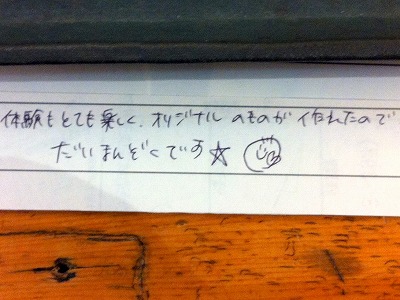 体験もとても楽しく、オリジナルのものが作れたので
だいまんぞくです☆